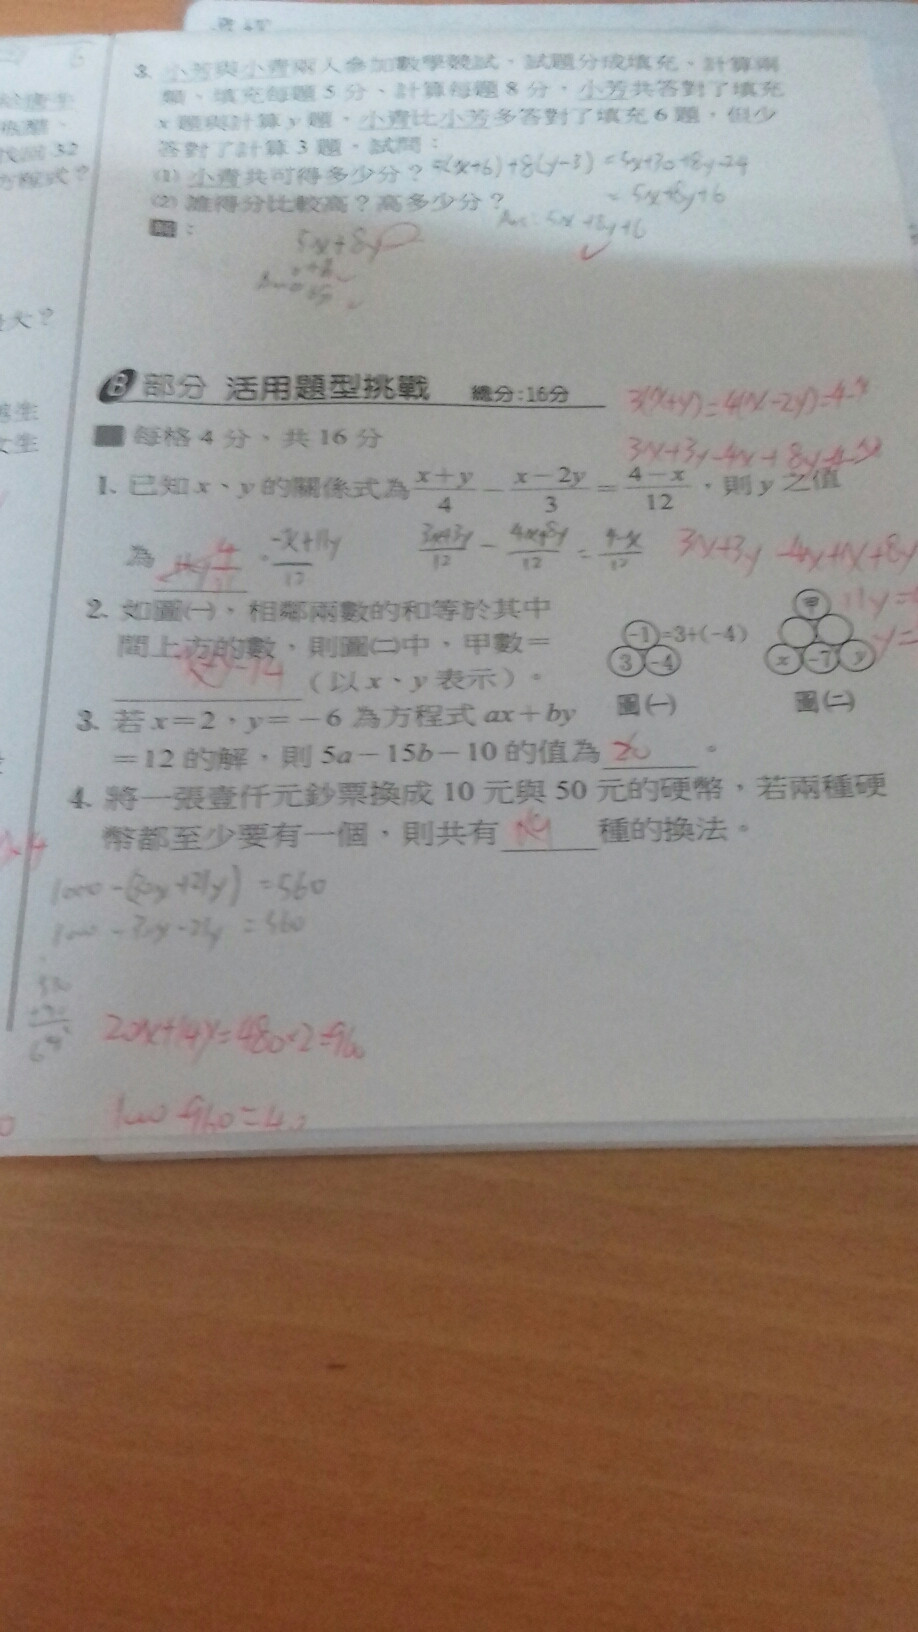 3. 小芳與小青兩人參加數學競試,試題分成填充、計算兩
類、填充每題 5 分、計算每題 8 分,小芳共答對了填充
x 題與計算 y 題,小青比小芳多答對了填充 6 題,但少
答對了計算 3 題,試問:
(1) 小青共可得多少分? 5(x+6)+8(y-3) =5x+30+8y-24
= 5x+8y+6
(2) 誰得分比較高?高多少分?
Ans: 5x+8y+6
解:
5x+8y
大?
方程式?
B 部分 活用題型挑戰 總分:16分
3(x+y)=4(x-2y)=4-x
每格 4 分、共 16 分
3x+3y-4x+8y=4-x
1. 已知 x、y 的關係式為 (x+y)/4 - (x-2y)/3 = (4-x)/12,則 y 之值
為 4/11 (-x+11y)/12 (3x+3y)/12 - (4x+8y)/12 = (4-x)/12 3x+3y -4x+x+8y
11y=
y=
2. 如圖㈠,相鄰兩數的和等於其中
間上方的數,則圖㈡中,甲數=
x+y-14 (以 x、y 表示)。
-1 =3+(-4)
3 -4
圖㈠
甲
x -7 y
圖㈡
3. 若 x=2,y=-6 為方程式 ax+by
=12 的解,則 5a-15b-10 的值為 20 。
4. 將一張壹仟元鈔票換成 10 元與 50 元的硬幣,若兩種硬
幣都至少要有一個,則共有 19 種的換法。
=560
=560
20x+14y=480×2=960
1000-960=40